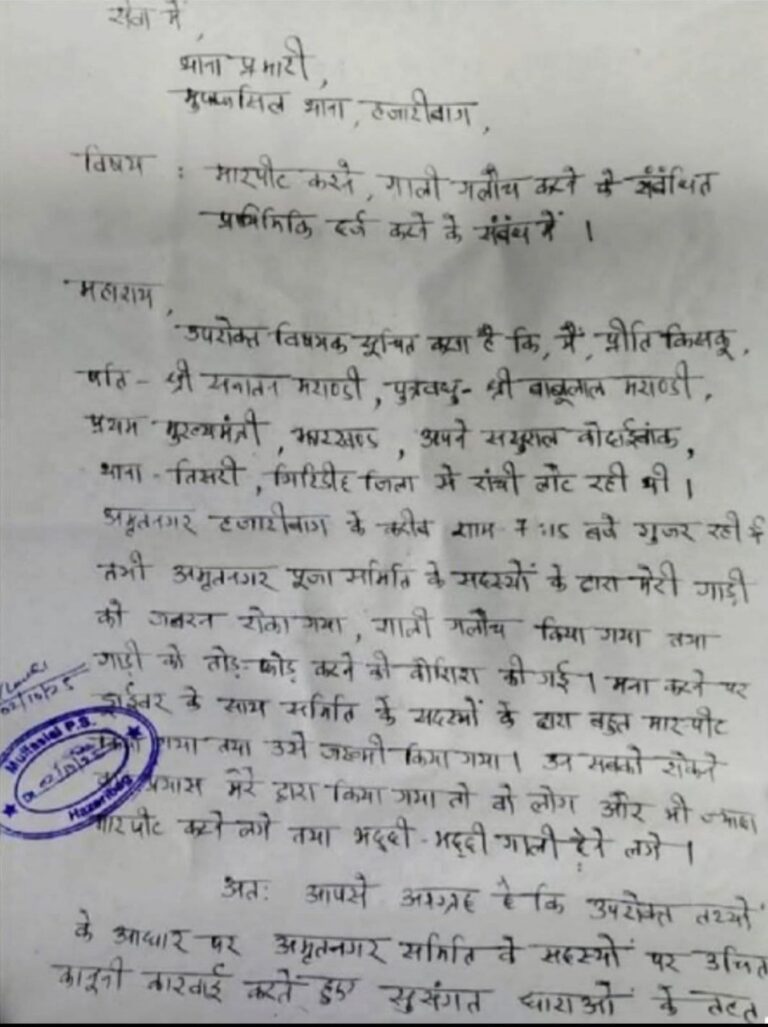 सेवा में,
थाना प्रभारी,
मुफ्फसिल थाना, हजारीबाग,
विषय : मारपीट करने, गाली गलौच करने के संबंधित
प्राथमिकि दर्ज करने के संबंध में ।
महाशय,
उपरोक्त विषयक सूचित करना है कि, मैं, प्रीति किसकू,
पति - श्री सनातन मराण्डी, पुत्रवधु - श्री बाबूलाल मराण्डी,
प्रथम मुख्यमंत्री, झारखण्ड, अपने ससुराल कोदाईबांक,
थाना - तिसरी, गिरिडीह जिला से रांची लौट रही थी ।
अमृतनगर हजारीबाग के करीब शाम 7:15 बजे गुजर रही थी
तभी अमृतनगर पूजा समिति के सदस्यों के द्वारा मेरी गाड़ी
को जबरन रोका गया, गाली गलौच किया गया तथा
गाड़ी को तोड़-फोड़ करने की कोशिश की गई । मना करने पर
ड्राईवर के साथ समिति के सदस्यों के द्वारा बहुत मारपीट
किया गया तथा उसे जख्मी किया गया । उन सबको रोकने
का प्रयास मेरे द्वारा किया गया तो वो लोग और भी ज्यादा
मारपीट करने लगे तथा भद्दी-भद्दी गाली देने लगे ।
अतः आपसे आग्रह है कि उपरोक्त तथ्यों
के आधार पर अमृतनगर समिति के सदस्यों पर उचित
कानूनी कारवाई करते हुए सुसंगत धाराओं के तहत
02/10/25
Muffasial P.S.
Hazaribag